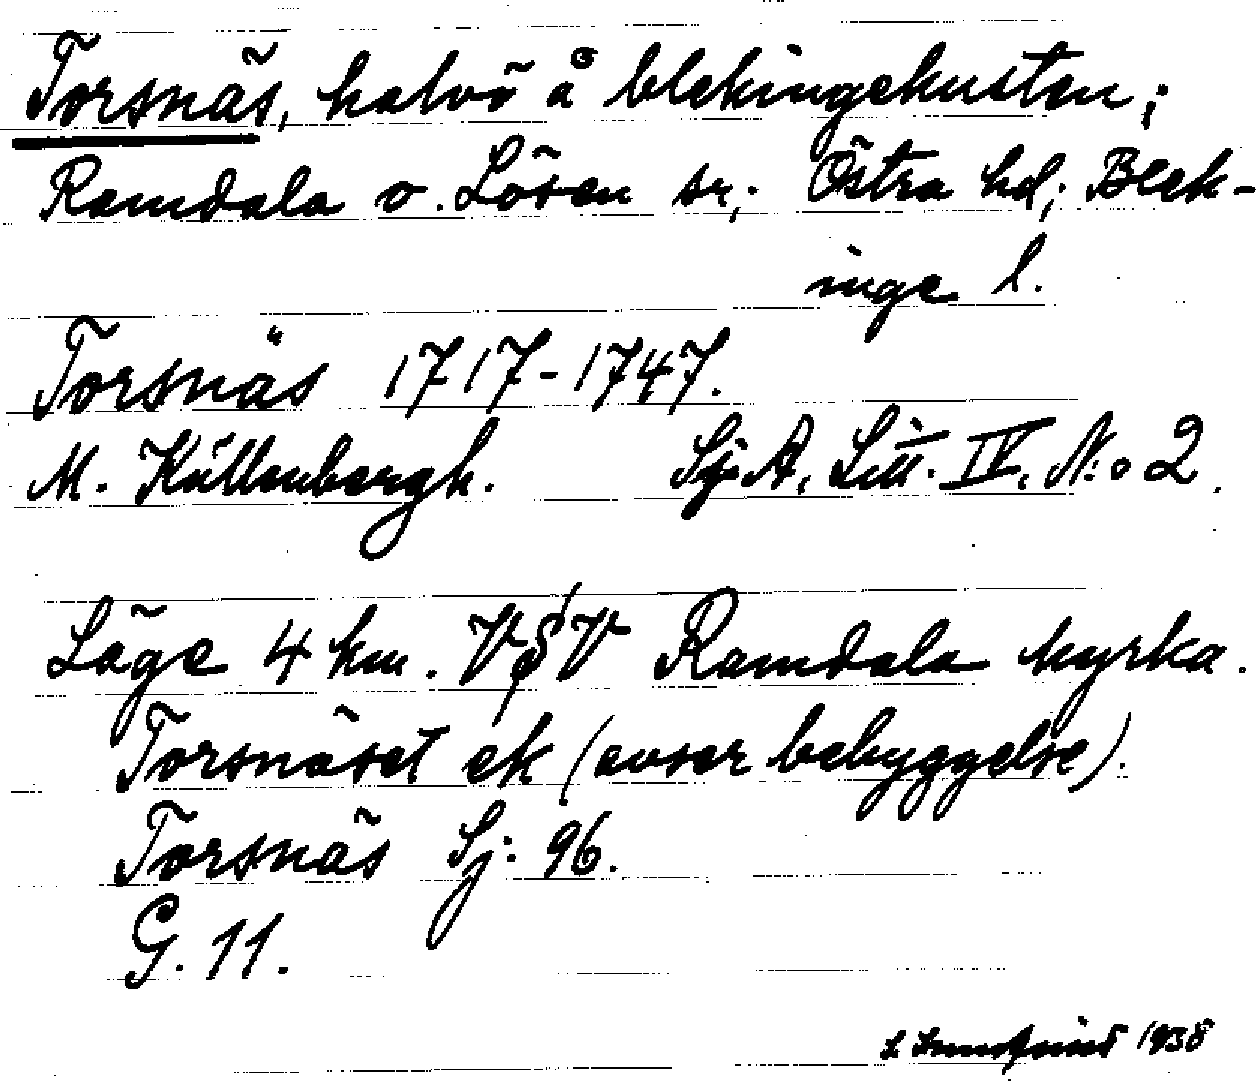 Torsnäs, halvö å blekingekusten;
Ramdala o. Lösen sn; Östra hd; Blek-
inge l.
Torsnäs 1717-1747.
M. Källenbergh. Sj. A. Litt. IV. N:o 2.
Läge 4 km. V§V Ramdala kyrka.
Torsnäset ek (avser bebyggelse).
Torsnäs Sj. 96.
G. 11.
1938